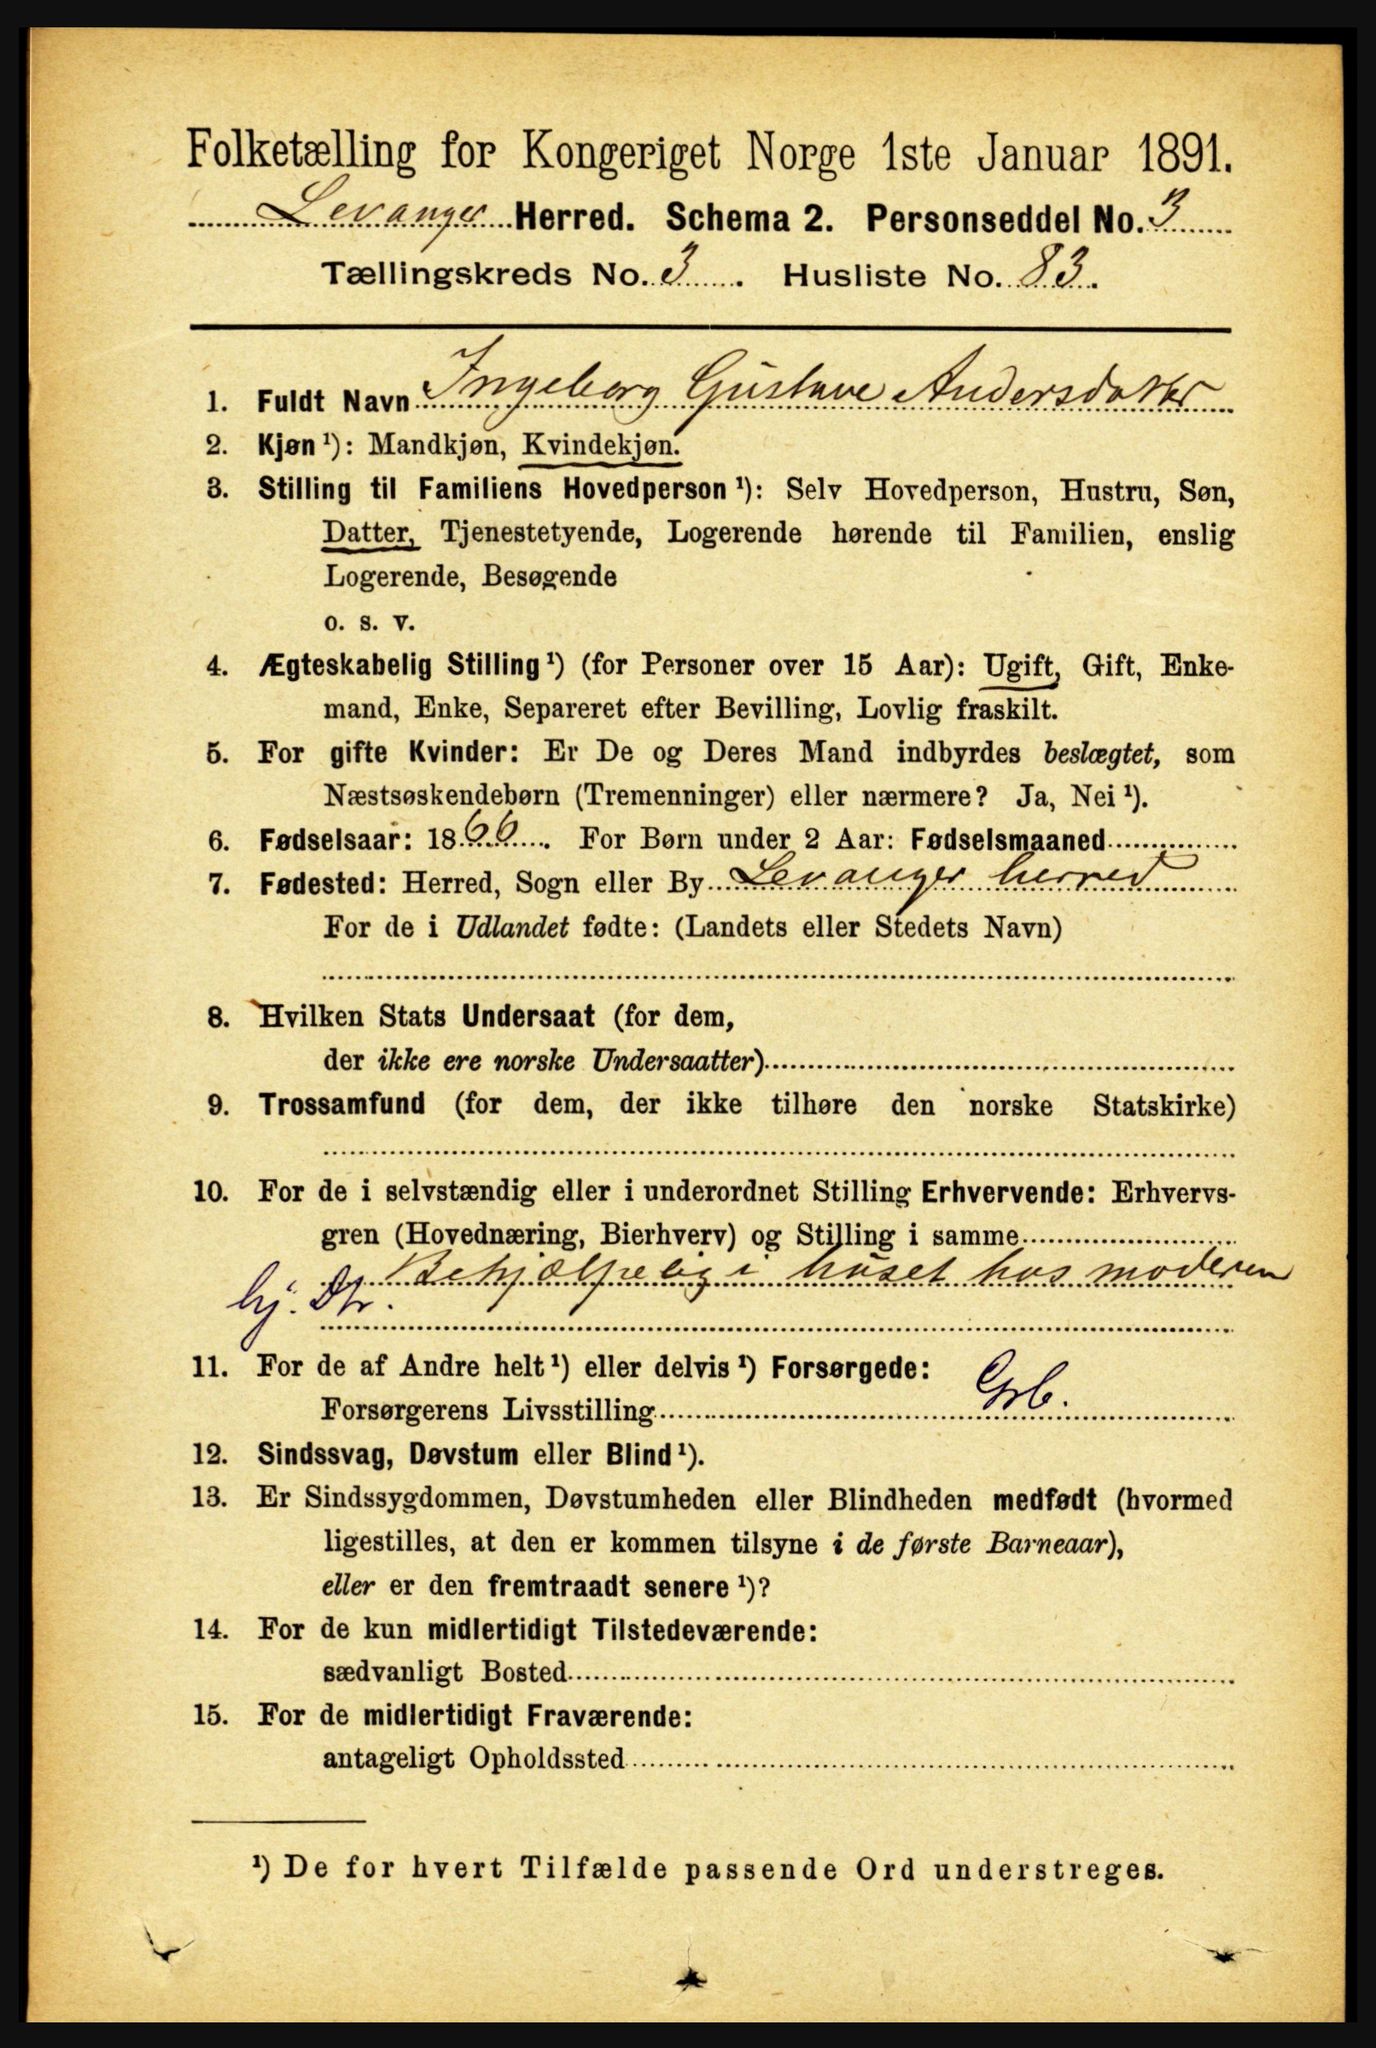 Folketælling for Kongeriget Norge 1ste Januar 1891.
Levanger Herred. Schema 2. Personseddel No. 3
Tællingskreds No. 3. Husliste No. 83.
1. Fuldt Navn Ingeborg Gustave Andersdatter
2. Kjøn ¹): Mandkjøn, Kvindekjøn.
3. Stilling til Familiens Hovedperson ¹): Selv Hovedperson, Hustru, Søn,
Datter, Tjenestetyende, Logerende hørende til Familien, enslig
Logerende, Besøgende
o. s. v.
4. Ægteskabelig Stilling ¹) (for Personer over 15 Aar): Ugift, Gift, Enke-
mand, Enke, Separeret efter Bevilling, Lovlig fraskilt.
5. For gifte Kvinder: Er De og Deres Mand indbyrdes beslægtet, som
Næstsøskendebørn (Tremenninger) eller nærmere? Ja, Nei ¹).
6. Fødselsaar: 1866. For Børn under 2 Aar: Fødselsmaaned
7. Fødested: Herred, Sogn eller By Levanger herred
For de i Udlandet fødte: (Landets eller Stedets Navn)
8. Hvilken Stats Undersaat (for dem,
der ikke ere norske Undersaatter)
9. Trossamfund (for dem, der ikke tilhøre den norske Statskirke)
10. For de i selvstændig eller i underordnet Stilling Erhvervende: Erhvervs-
gren (Hovednæring, Bierhverv) og Stilling i samme
Behjælpelig i huset hos moderen
hj. Dtr.
11. For de af Andre helt ¹) eller delvis ¹) Forsørgede:
Forsørgerens Livsstilling Grb.
12. Sindssvag, Døvstum eller Blind ¹).
13. Er Sindssygdommen, Døvstumheden eller Blindheden medfødt (hvormed
ligestilles, at den er kommen tilsyne i de første Barneaar),
eller er den fremtraadt senere ¹)?
14. For de kun midlertidigt Tilstedeværende:
sædvanligt Bosted
15. For de midlertidigt Fraværende:
antageligt Opholdssted
¹) De for hvert Tilfælde passende Ord understreges.